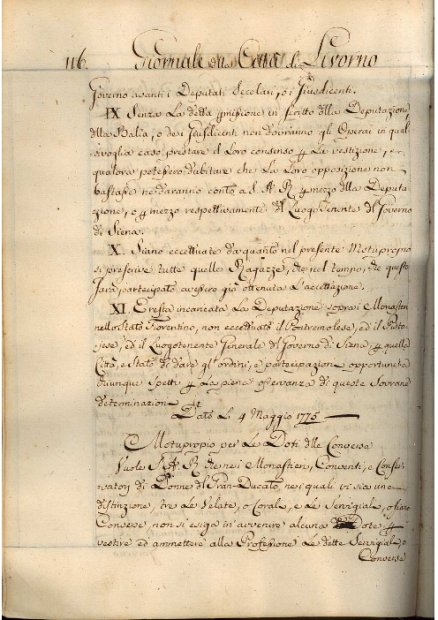 116. Giornale della Città di Livorno
Governo avanti i Deputati Secolari, o i Giusdicenti.
IX Senza La detta permissione in scritto della Deputazione
della Balìa, o dei Giusdicenti non dovranno gli Operai in qual
sivoglia caso prestare il Loro consenso p La vestizione, e
qualora potessero dubitare che La Loro opposizione non
bastasse ne daranno conto a S. A. R. p mezzo della Deputa
azione, o p mezzo respettivamente del Luogo Tenente del Governo
di Siena.
X. Siano eccettuate da quanto nel presente Motuproprio
si prescrive tutte quelle Ragazze, che nel tempo, che questo
sarà partecipato avessero già ottenuta L'accettazione.
XI. E resta incaricata La Deputazione sopra i Monasteri
nello Stato Fiorentino, non eccettuato il Pontremolese, ed il Pisto-
iese, ed il Luogotenente Generale del Governo di Siena p quella
Città, e Stato di dare gl'ordini, e partecipazioni opportune a
chiunque spetti p La piena osservanza di queste Sovrane
determinazioni
Dat. Li 4 Maggio 1775
Motuproprio per Le Doti delle Converse
Vuole S. A. R. che nei Monasteri, Conventi, e Conser
vatorj di Donne del Gran-Ducato, nei quali vi sia una
distinzione, tra Le Velate, o Corali, e Le Serviziali, o siano
Converse, non si esiga in avvenire alcuna Dote p
vestire ed ammettere alla Professione Le dette Serviziali, o
Converse